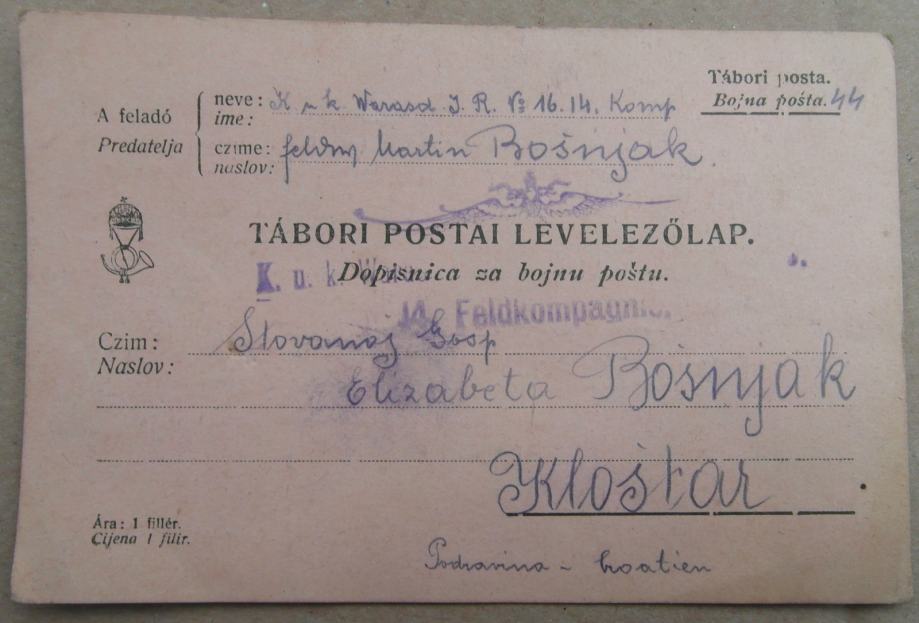 Tábori posta.
Bojna pošta. 44
A feladó
Predatelja
neve: K u k Warasd I. R. № 16. 14. Komp
ime:
czime: feldw Martin Bošnjak.
naslov:
TÁBORI POSTAI LEVELEZŐLAP.
Dopisnica za bojnu poštu.
K. u. k.
14. Feldkompagnie.
Czim: Slovanoj Gosp
Naslov:
Elizabeta Bošnjak
Kloštar
Ára: 1 fillér.
Cijena 1 filir.
Podravina - Croatien